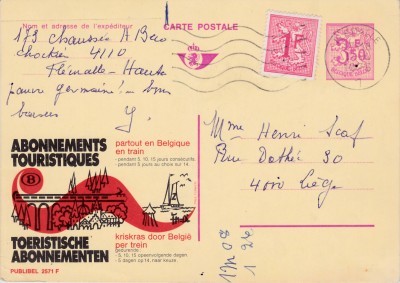 Nom et adresse de l'expéditeur
CARTE POSTALE
173 Chaussée
4110
Flémalle-Haute
pauvre germaine! - bons
baisers
Y.
1F
3F
50
ABONNEMENTS
TOURISTIQUES
partout en Belgique
en train
- pendant 5, 10, 15 jours consécutifs.
- pendant 5 jours au choix sur 14.
B
TOERISTISCHE
ABONNEMENTEN
kriskras door België
per trein
Gedurende:
- 5, 10, 15 opeenvolgende dagen
- 5 dagen op 14, naar keuze.
PUBLIBEL 2571 F
Mme Henri
Rue 30
4000 Liège